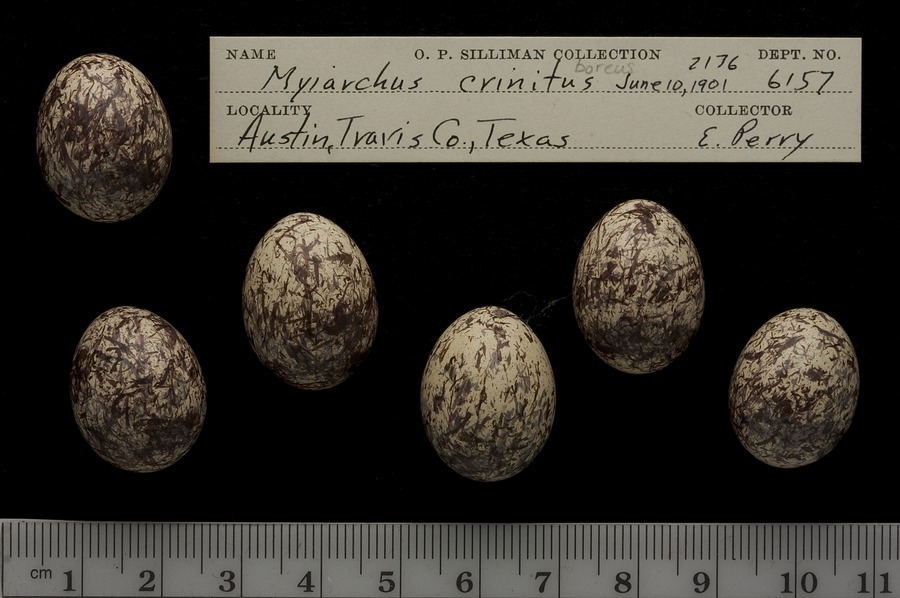 NAME O. P. SILLIMAN COLLECTION 2176 DEPT. NO.
boreus
Myiarchus crinitus June 10, 1901 6157
LOCALITY COLLECTOR
Austin, Travis Co., Texas E. Perry
cm 1 2 3 4 5 6 7 8 9 10 11